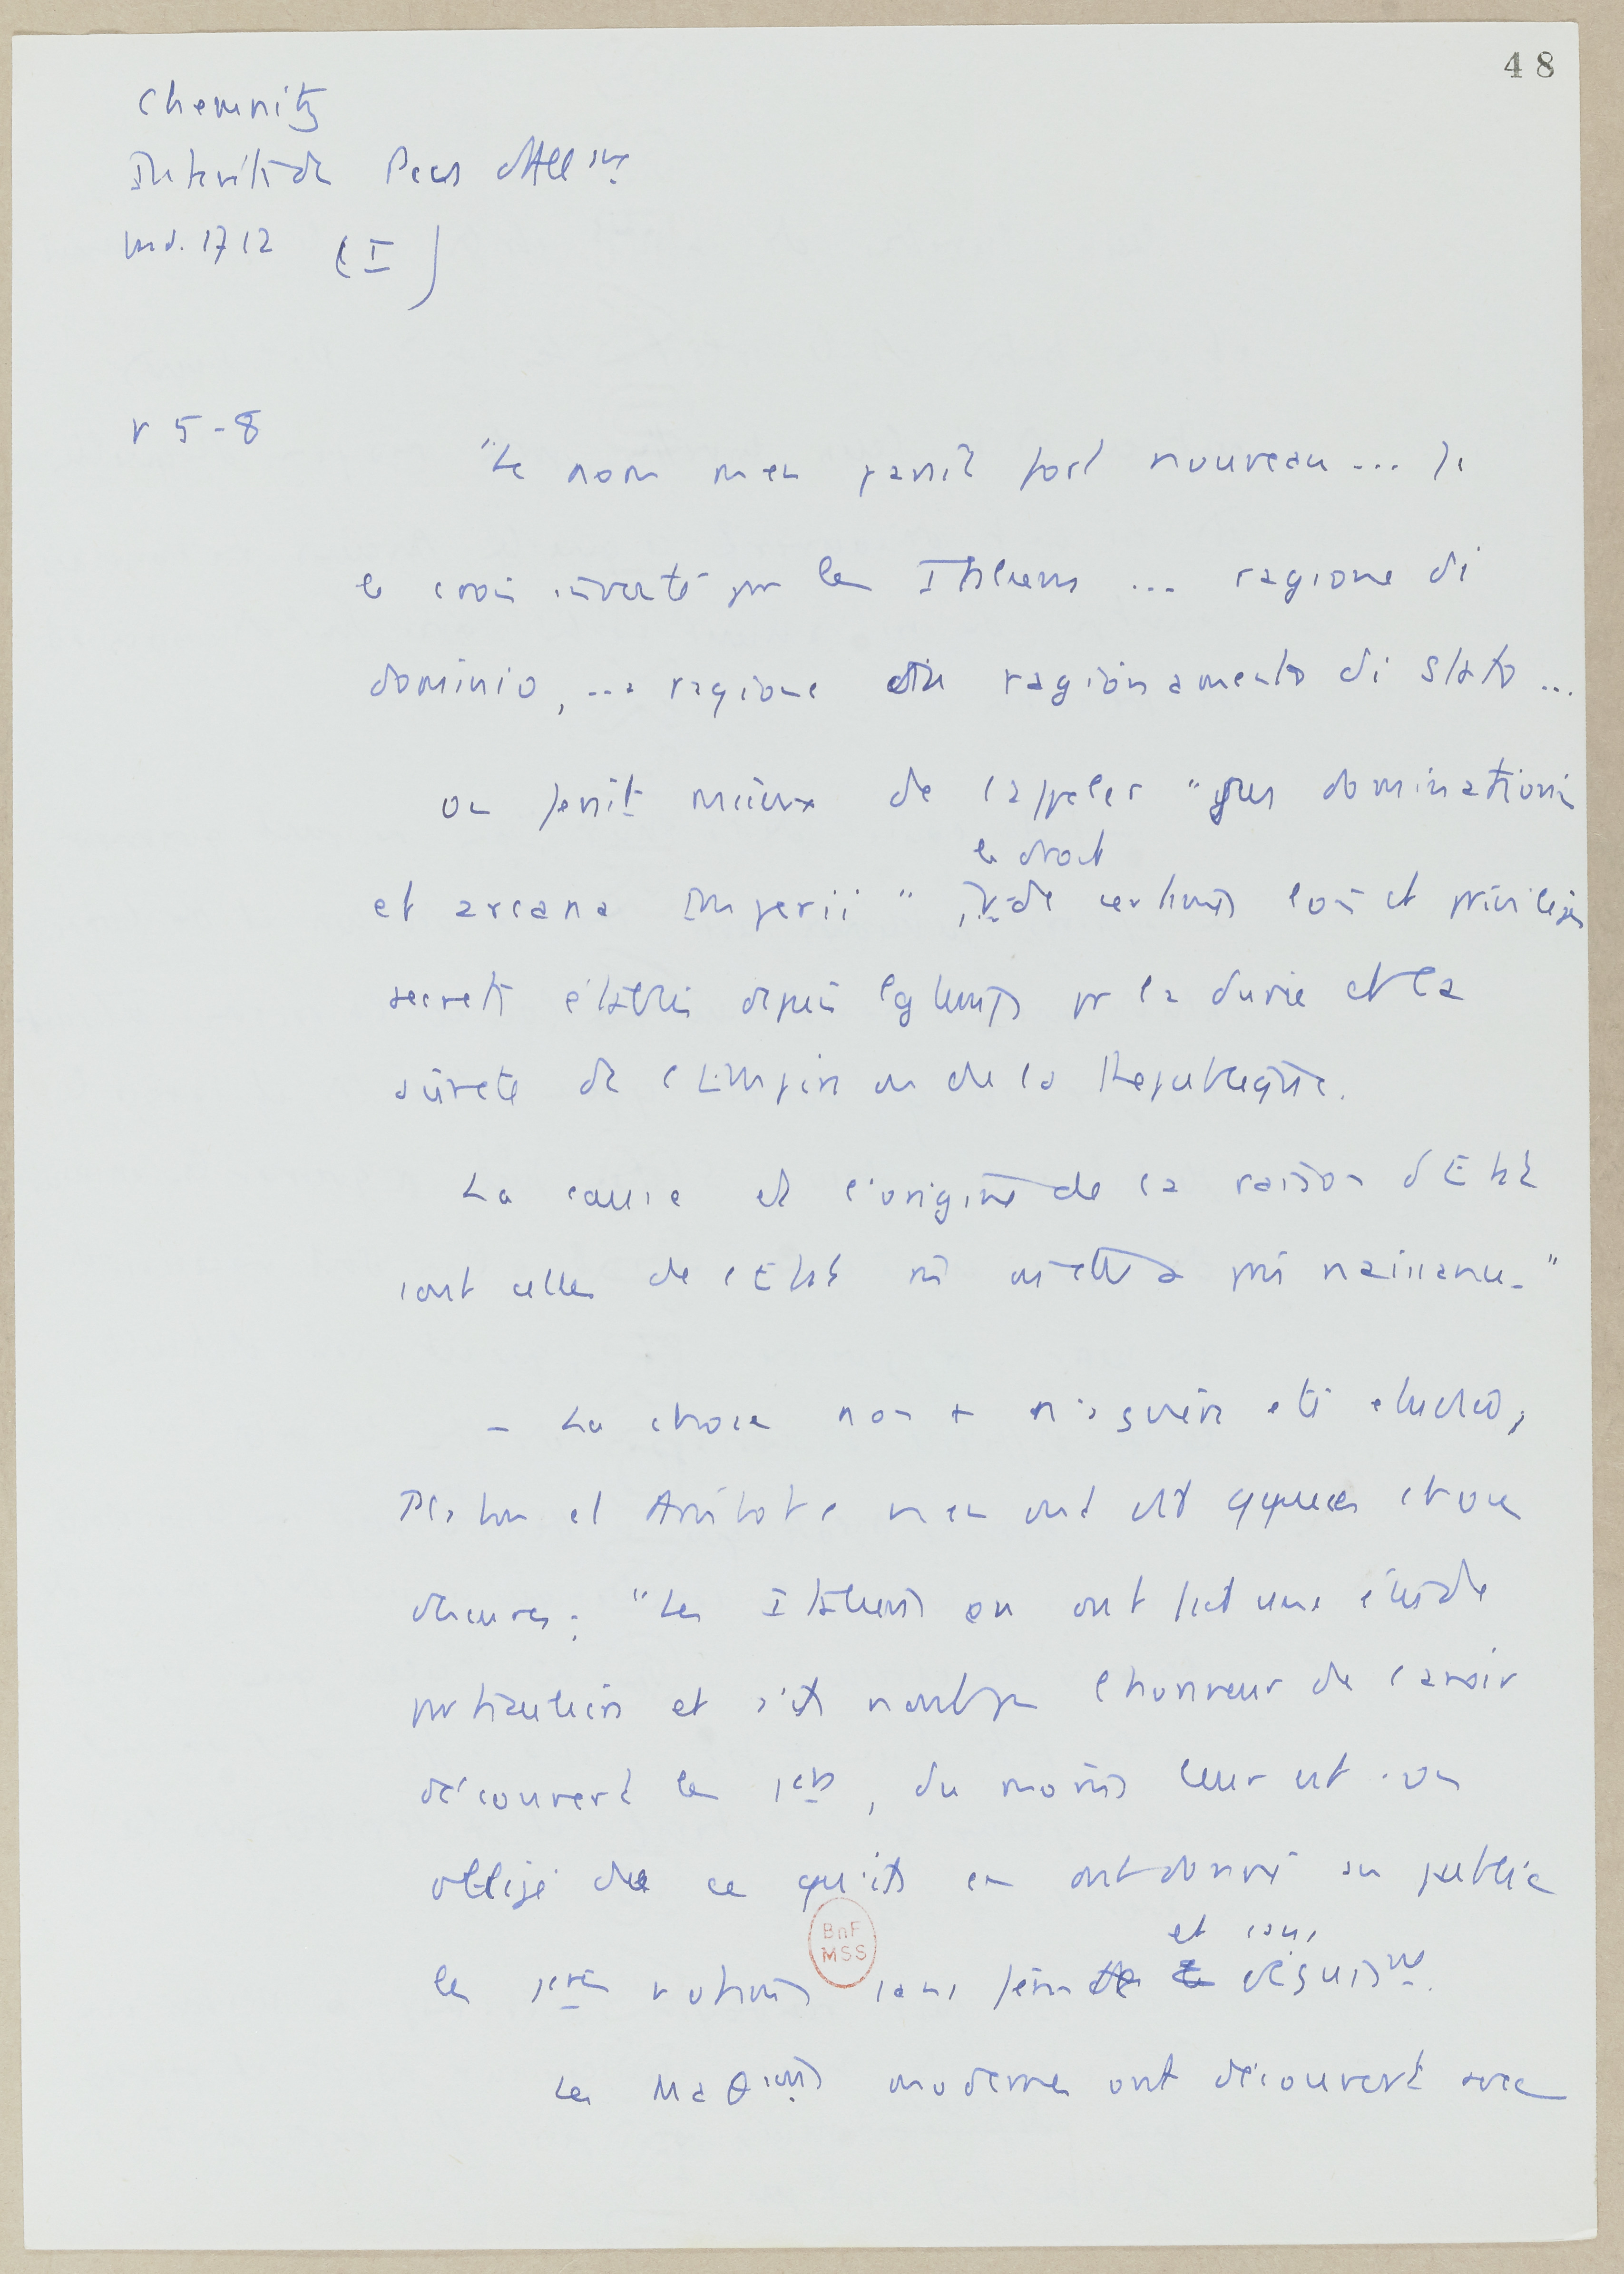 48
Chemnitz
Intérêts des Princes d'Allemagne
trad. 1712 (I)
p 5-8
"Le nom m'en paraît fort nouveau... je
le crois inventé par les Italiens ... ragione di
dominio, ... ragione ou ragionamento di Stato ...
on ferait mieux de l'appeler "jus dominationis
le droit
et arcana Imperii" de certaines lois et privilèges
secrets établis depuis longtemps pr la durée et la
sûreté de l'Empire ou de la République.
La cause et l'origine de la raison d'Etat
sont celles de l'Etat où elle a pris naissance."
- La chose non + n'a guère été étudiée,
Platon et Aristote n'en ont dit qques choses
obscures: "Les Italiens en ont fait une étude
particulière et s'ils n'ont pas l'honneur de l'avoir
découvert les 1ers, du moins leur est-on
obligé de ce qu'ils en ont donné au public
et sans
les 1eres notions sans déguisement.
BnF
MSS
Les modernes ont découvert avec